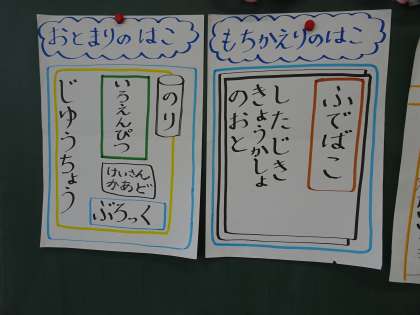 おとまりのはこ
のり
いろえんぴつ
けいさん
かあど
ぶろっく
じゆうちょう
もちかえりのはこ
ふでばこ
したじき
きょうかしょ
のおと